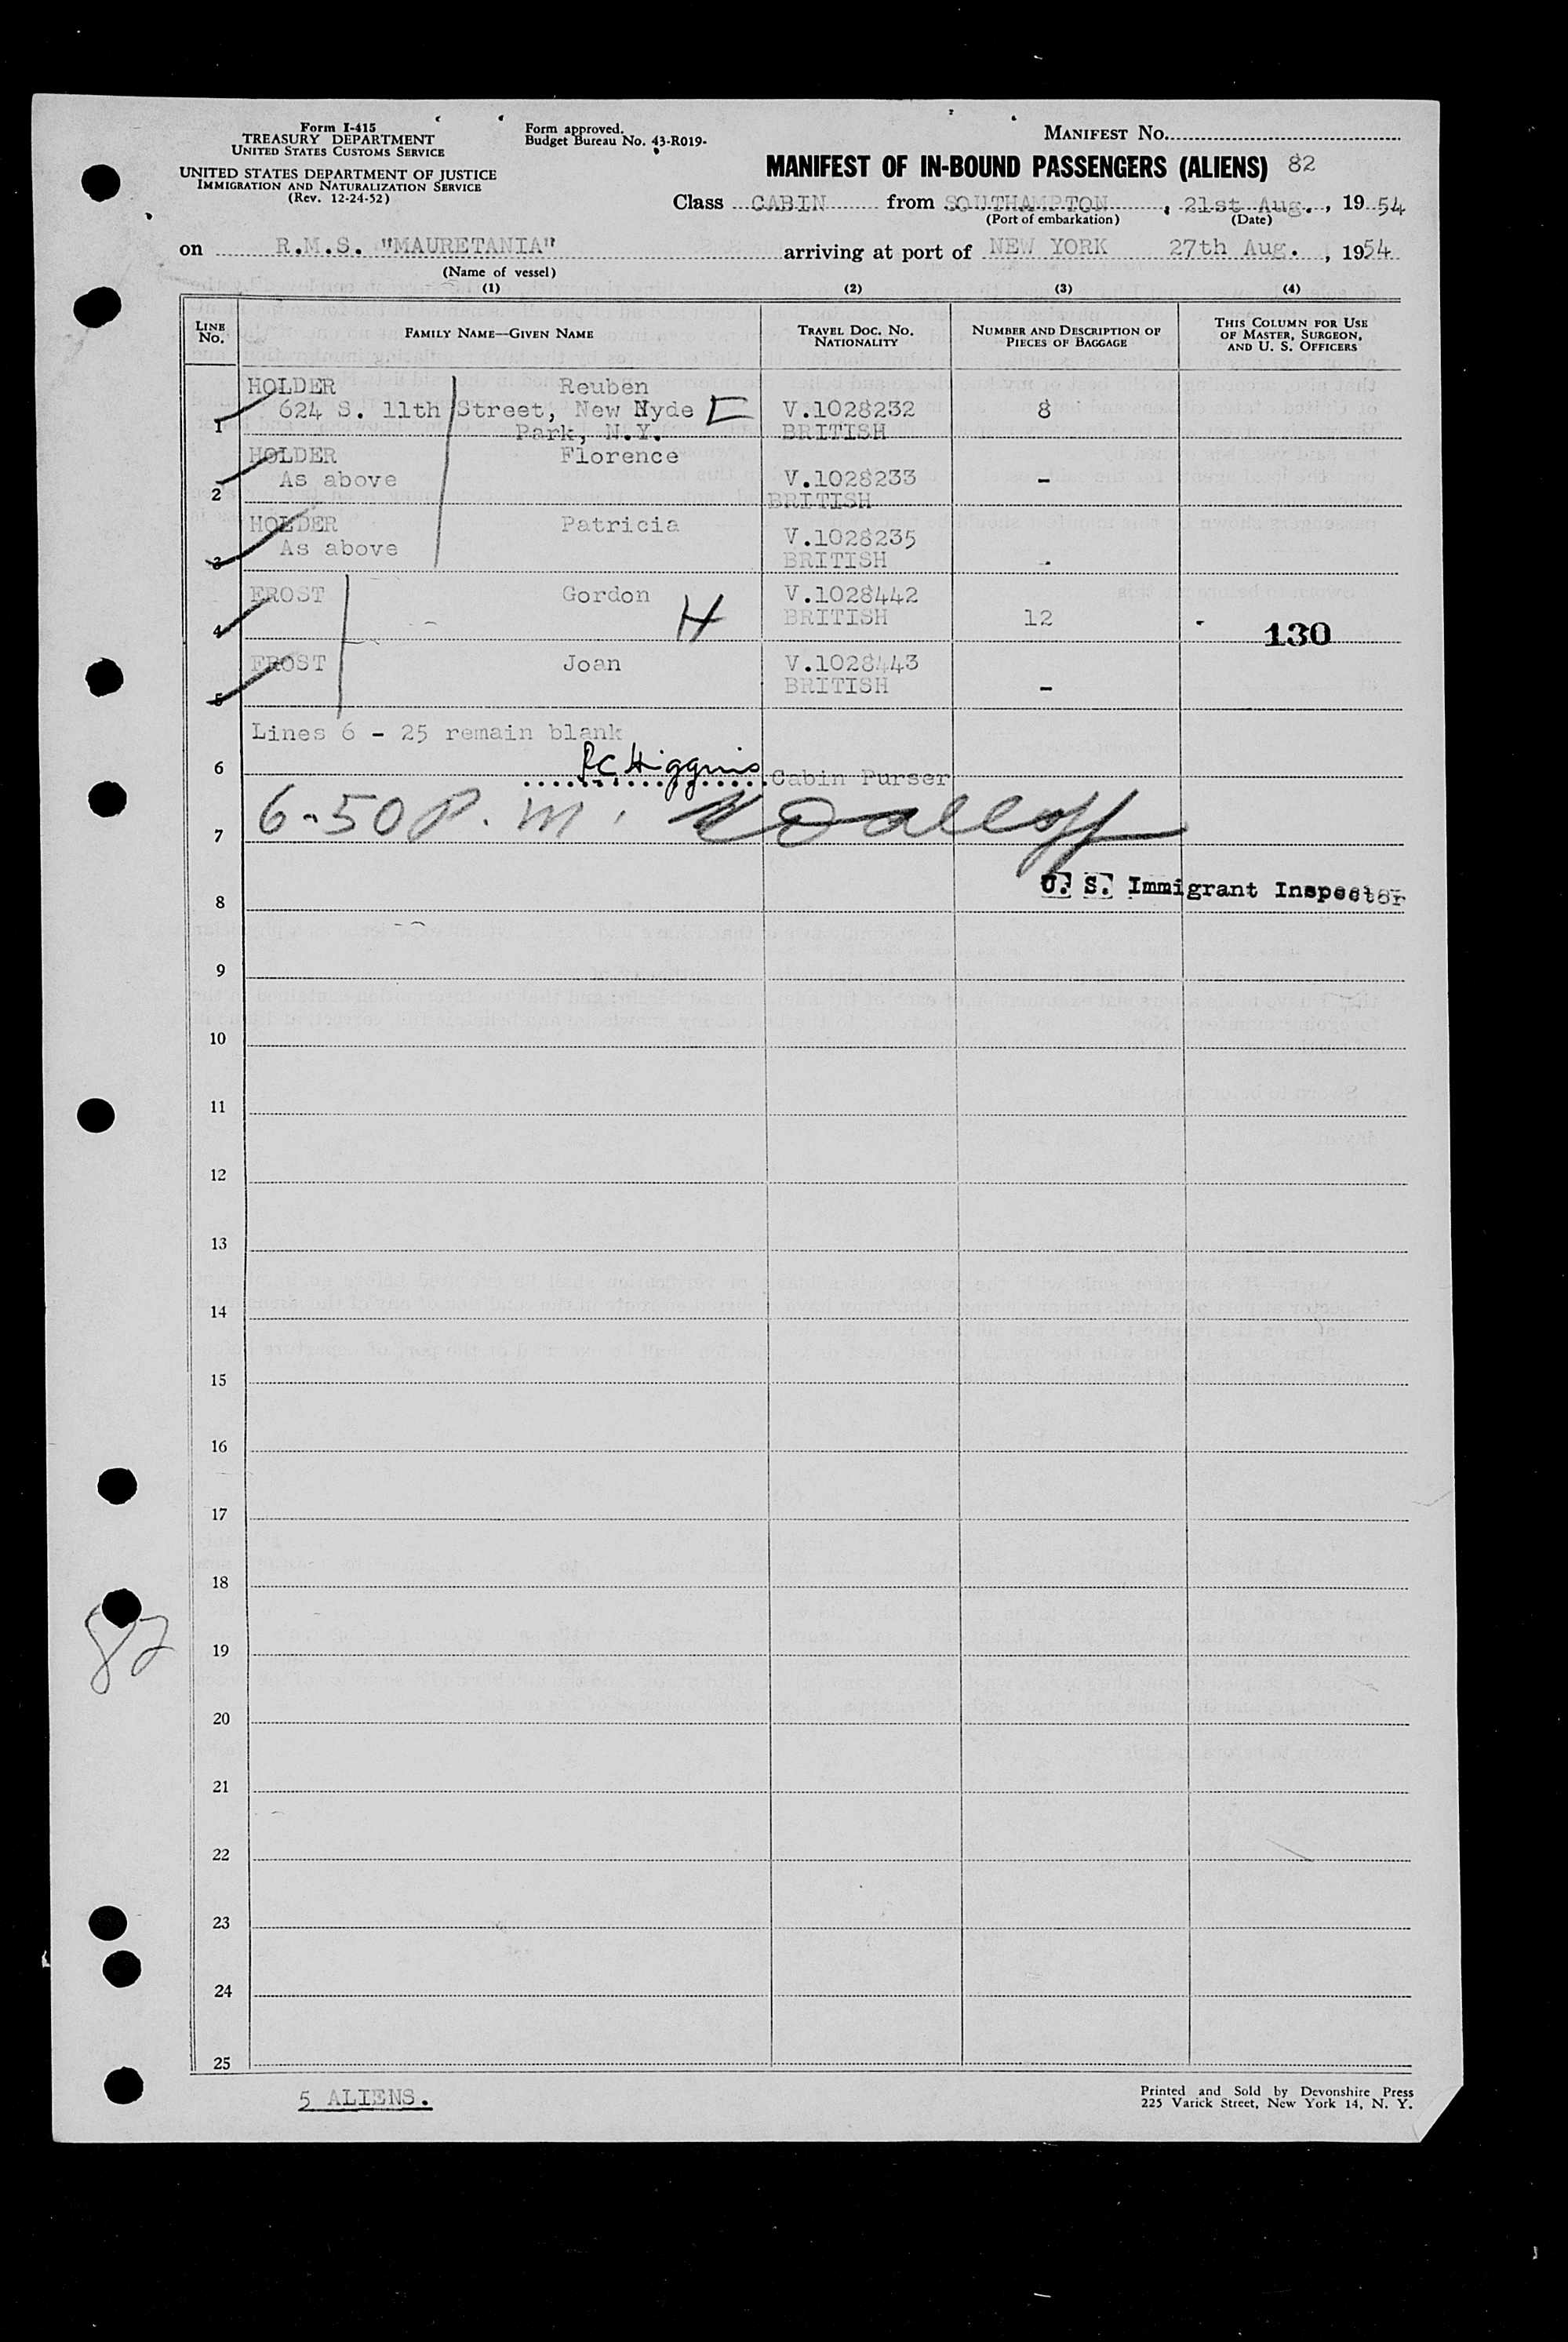 Form I-415
TREASURY DEPARTMENT
UNITED STATES CUSTOMS SERVICE
UNITED STATES DEPARTMENT OF JUSTICE
IMMIGRATION AND NATURALIZATION SERVICE
(Rev. 12-24-52)
Form approved.
Budget Bureau No. 43-R019-
MANIFEST No.
MANIFEST OF IN-BOUND PASSENGERS (ALIENS) 82
Class CABIN from SOUTHAMPTON, 21st Aug., 1954
(Port of embarkation) (Date)
on R.M.S. "MAURETANIA" arriving at port of NEW YORK 27th Aug., 1954
(Name of vessel)
(1) (2) (3) (4)
LINE No. FAMILY NAME—GIVEN NAME TRAVEL DOC. NO. NATIONALITY NUMBER AND DESCRIPTION OF PIECES OF BAGGAGE THIS COLUMN FOR USE OF MASTER, SURGEON, AND U. S. OFFICERS
HOLDER Reuben
624 S. 11th Street, New Hyde V.1028232 8
1 Park, N.Y. BRITISH
HOLDER Florence
As above V.1028233 -
2 BRITISH
HOLDER Patricia
As above V.1028235
3 BRITISH -
FROST Gordon V.1028442
4 H BRITISH 12 130
FROST Joan V.1028443
5 BRITISH -
Lines 6 - 25 remain blank
6 Cabin Purser
7 6-50 P.M.
U. S. Immigrant Inspector
8
9
10
11
12
13
14
15
16
17
18
82
19
20
21
22
23
24
25
5 ALIENS.
Printed and Sold by Devonshire Press
225 Varick Street, New York 14, N. Y.